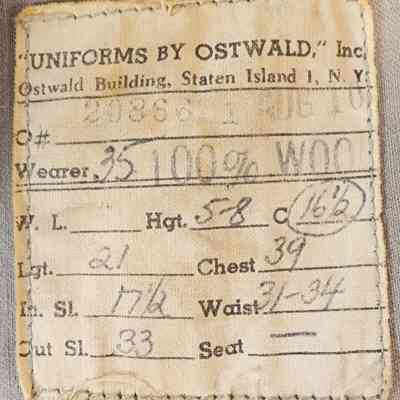 "UNIFORMS BY OSTWALD," Inc.
Ostwald Building, Staten Island 1, N. Y.
20866 1 AUG 10
O#
Wearer 35 100% WOO
W. L. Hgt. 5-8 C 16½
Lgt. 21 Chest 39
In. Sl. 17½ Waist 31-34
Out Sl. 33 Seat —